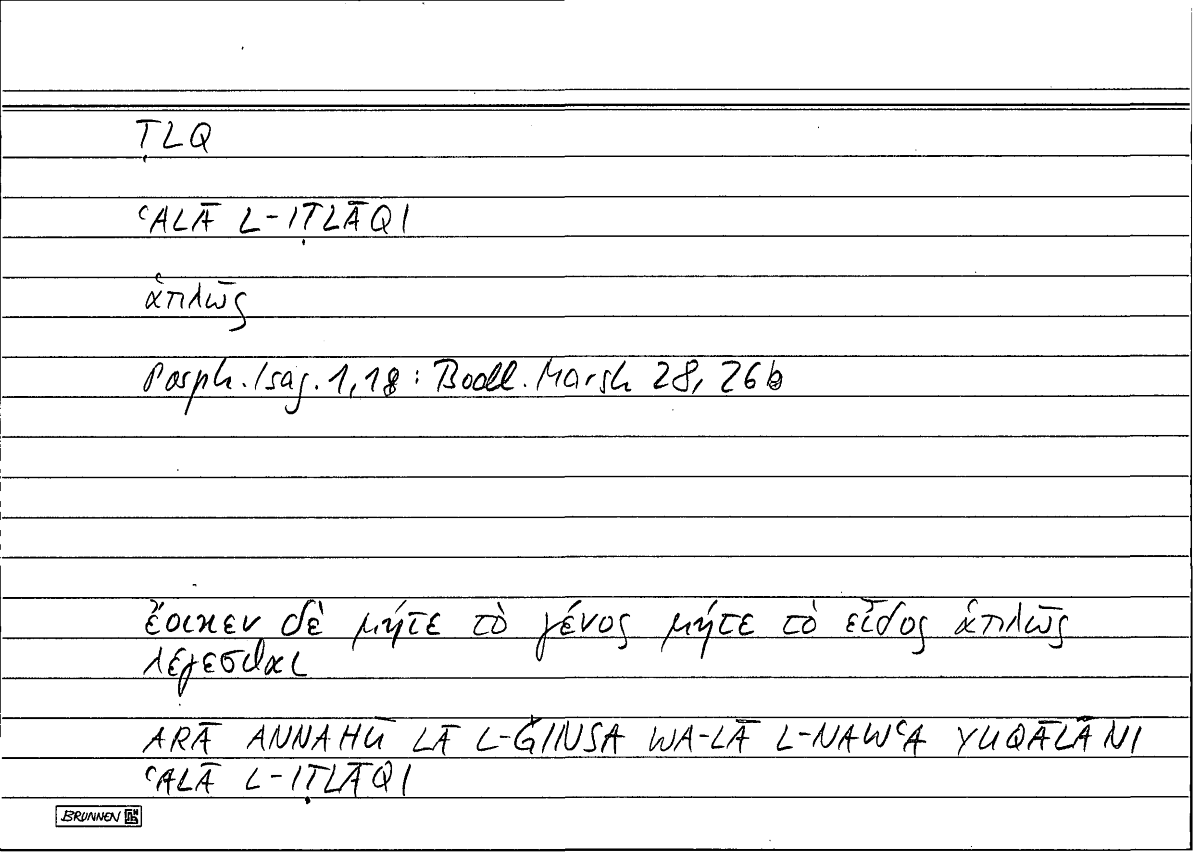 ṬLQ
ʿALĀ L-IṬLĀQI
ἁπλῶς
Porph. Isag. 1,18 : Bodl. Marsh 28, 26b
ἔοικεν δὲ μήτε τὸ γένος μήτε τὸ εἶδος ἁπλῶς
λέγεσθαι
ARĀ ANNAHŪ LĀ L-ǦINSA WA-LĀ L-NAWʿA YUQĀLĀNI
ʿALĀ L-IṬLĀQI
BRUNNEN